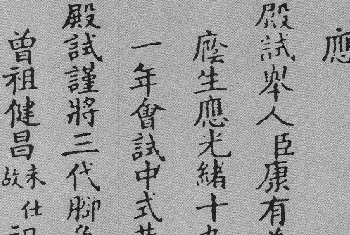 應
殿試舉人臣康有
廕生應光緒十
一年會試中式
殿試謹將三代腳
曾祖健昌未仕故祖